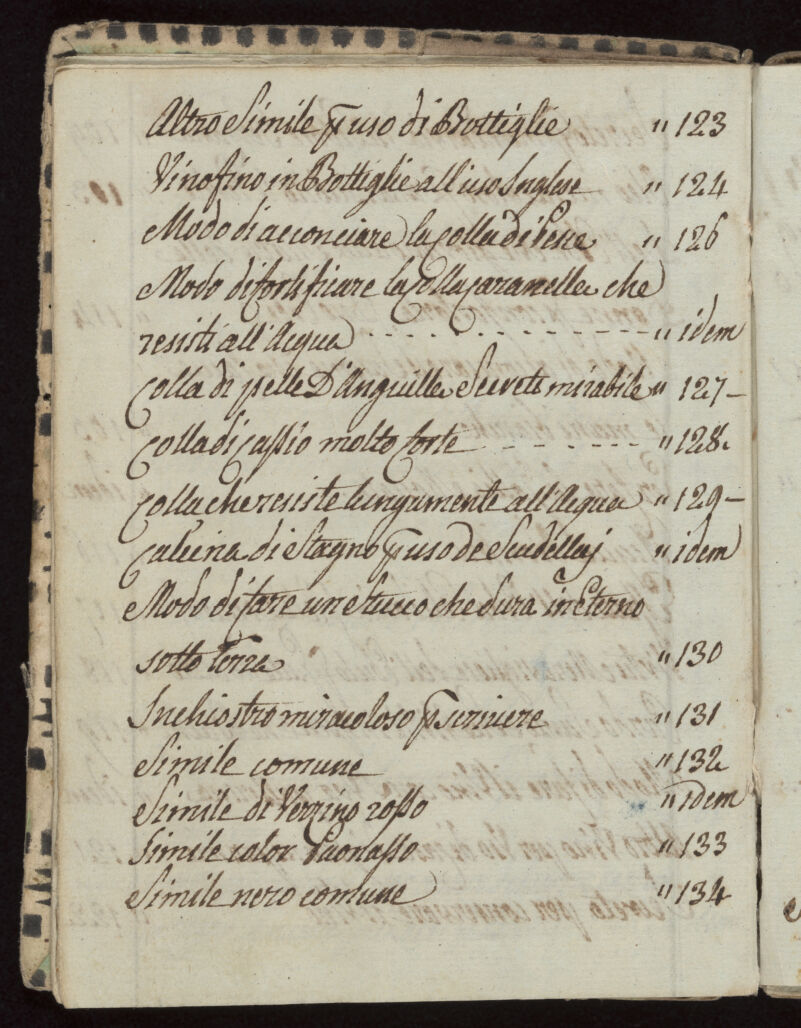 Altro Simile p uso di Bottiglie " 123
Vino fino in Bottiglie all'uso Inglese " 124
Modo di acconciare la Colla di Pesce " 126
Modo di fortificare la Colla Caranella che
resisti all'Acqua " idem
Colla di pelle D'Anguilla Secreto mirabile " 127-
Colla di molto forte " 128.
Colla che resiste lungamente all'Acqua " 129-
Calcina di Stagno p uso de Scudellaj " idem
Modo di fare un Stucco che dura in Eterno
sotto Terra " 130
Inchiostro miracoloso p scrivere " 131
Simile comune " 132
Simile di Verzino rosso " idem
Simile color Paonasso " 133
Simile nero comune " 134